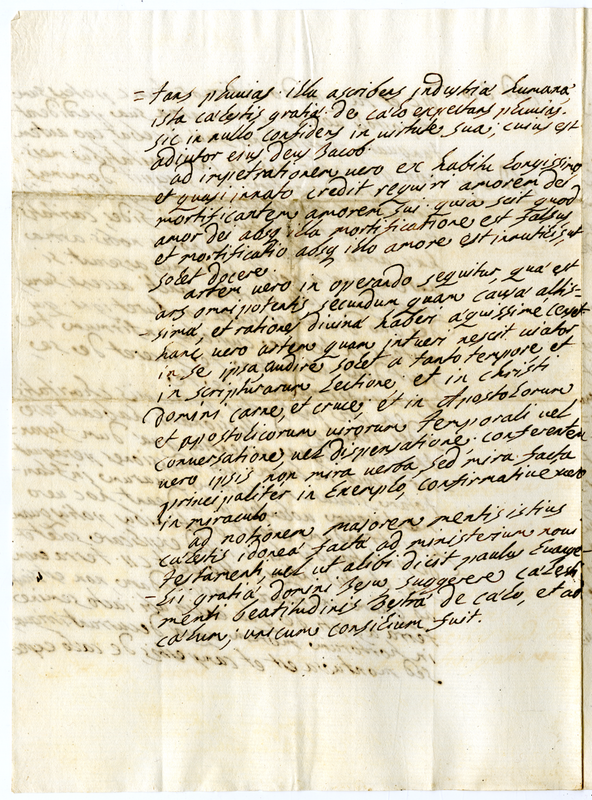 = tans pluvias. illa ascribens industria humana
ista cælestis gratia de cælo expectans pluvias.
sic in nullo confidens in virtute sua; cuius est
adiutor eius deus Iacob.
ad impetrationem vero ex habitu longissimo
et quasi innato credit requiri amorem dei
mortificantem amorem sui quia scit quod
amor dei absq illa mortificatione est falsus
et mortificatio absq illo amore est inutilis, ut
solet docere.
artem vero in operando sequitur, qua est
ars omnipotentis secundum quam causa altis-
- sima, et ratione divina haberi
hanc vero artem quam intueri nescit viator
in se ipsa audire solet a tanto tempore et
in scripturarum lectione, et in Christi
Domini carne, et cruce; et in Apostolorum
et apostolicorum virorum temporali vel
conversatione, vel dispensatione; conferentem
vero ipsis non mira verba, sed mira facta
principaliter in exemplo, confirmative vero
in miraculo.
ad notionem majorem mentis istius
cælestis idonea facta ad ministerium noui
testamenti, vel ut alibi dicit paulus Euange-
- lii gratia domini Iesu suggerere cælesti
menti beatitudinis Vestra de cælo, et ad
cælum; unicum consilium fuit.